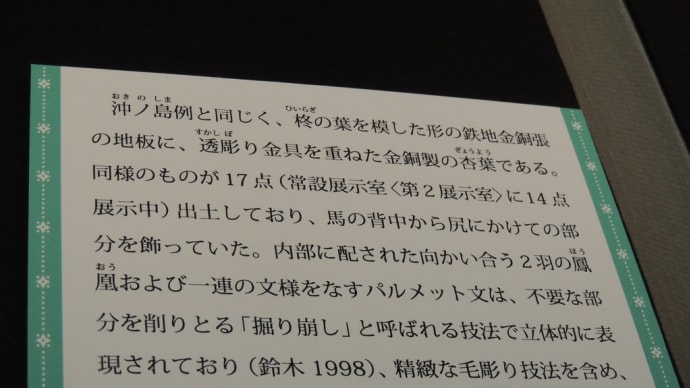 おきのしま ひいらぎ
沖ノ島例と同じく、柊の葉を模した形の鉄地金銅張
すかしぼ ぎょうよう
の地板に、透彫り金具を重ねた金銅製の杏葉である。
同様のものが17点（常設展示室〈第2展示室〉に14点
展示中）出土しており、馬の背中から尻にかけての部
分を飾っていた。内部に配された向かい合う2羽の鳳
ほう
おう
凰および一連の文様をなすパルメット文は、不要な部
分を削りとる「掘り崩し」と呼ばれる技法で立体的に表
現されており（鈴木1998）、精緻な毛彫り技法を含め、